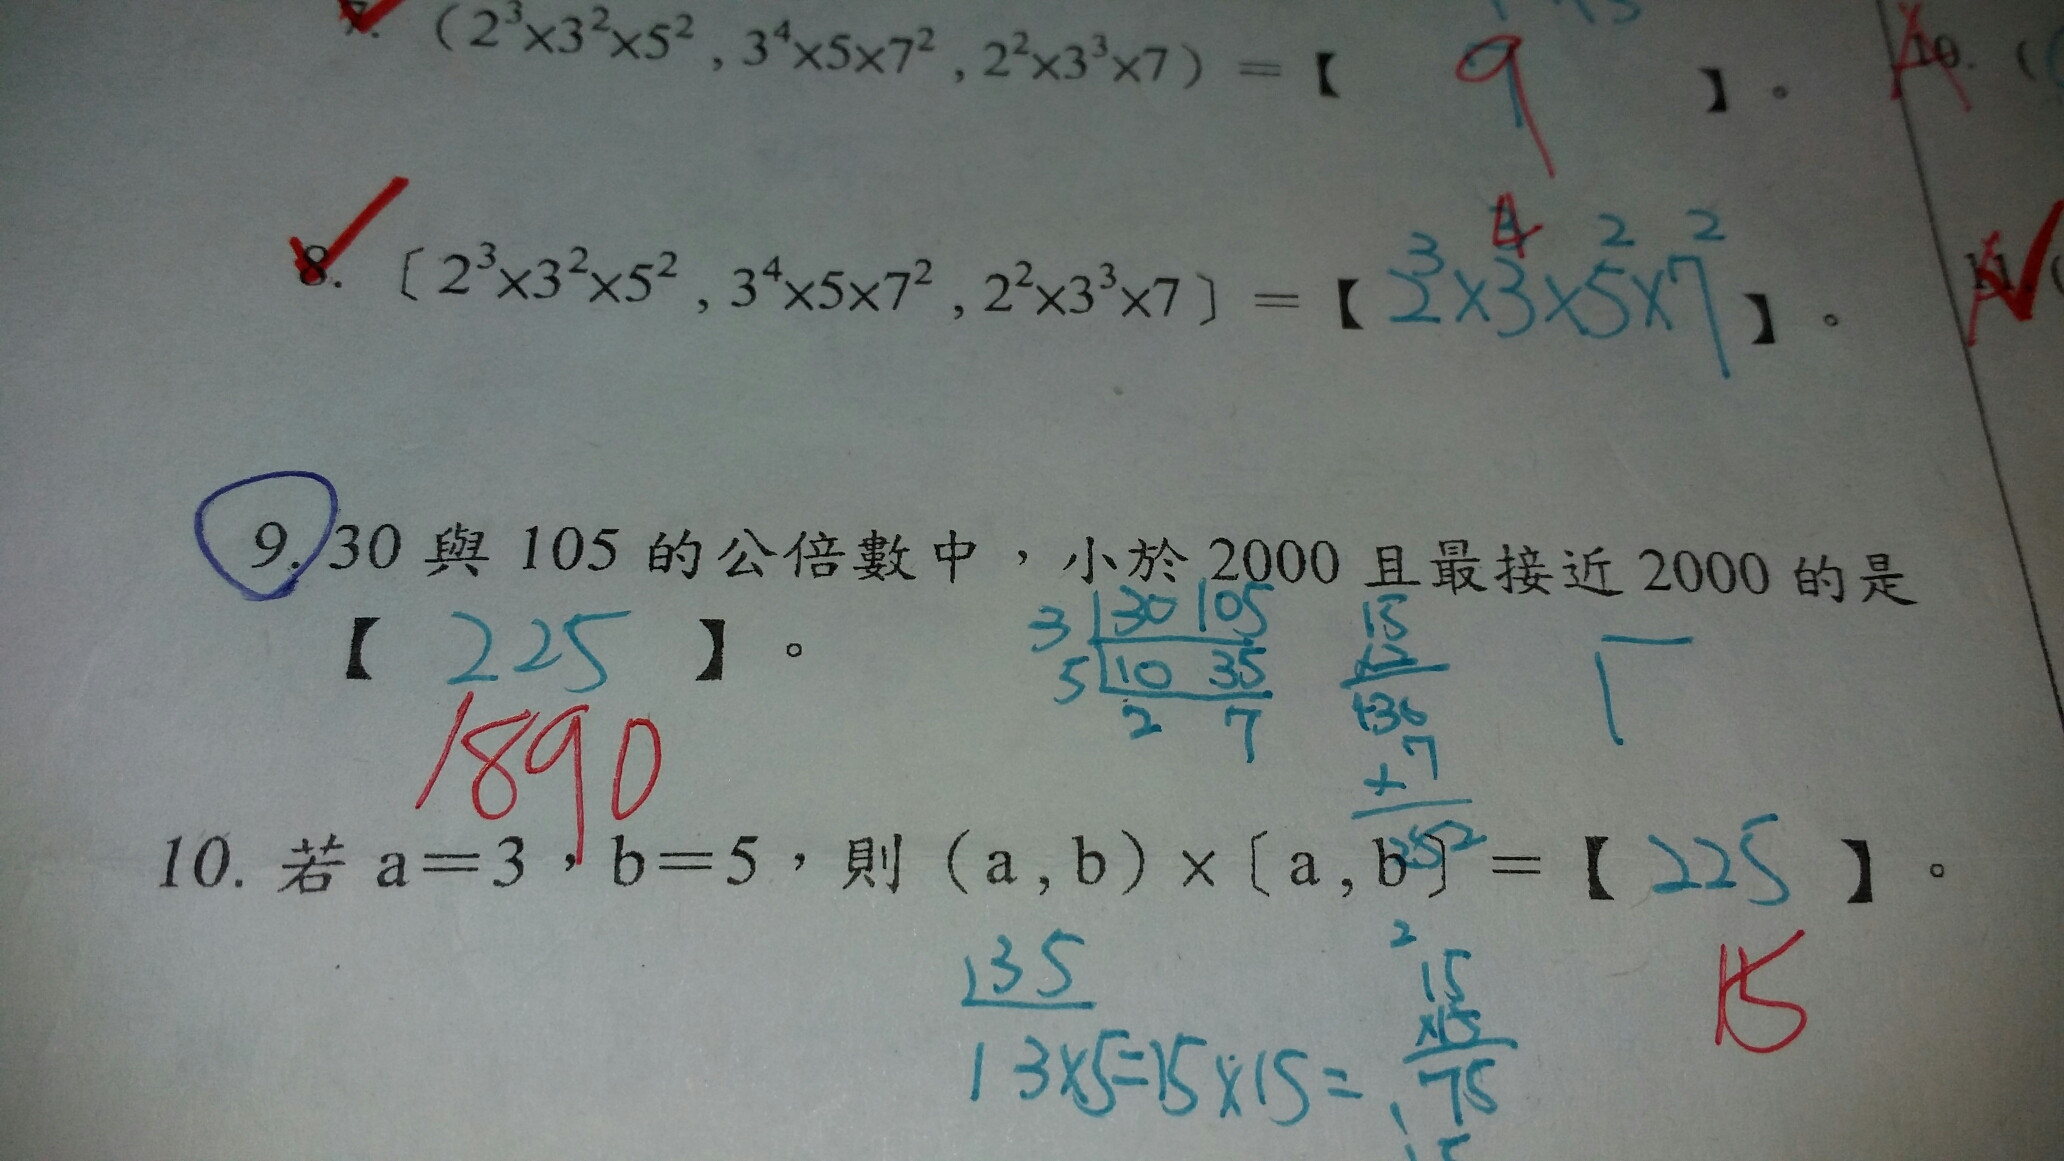 7. (2³×3²×5² , 3⁴×5×7² , 2²×3³×7) =【 9 】。
8. 〔2³×3²×5² , 3⁴×5×7² , 2²×3³×7〕=【 2³×3⁴×5²×7² 】。
9. 30 與 105 的公倍數中，小於 2000 且最接近 2000 的是
【 225 】。
1890
3 30 105
5 10 35
2 7
15
+ 7
252
10. 若 a＝3，b＝5，則 (a , b) ×〔a , b〕=【 225 】。
15
3 5
1 3×5=15×15=
2
15
×15
75
10. (
11. (